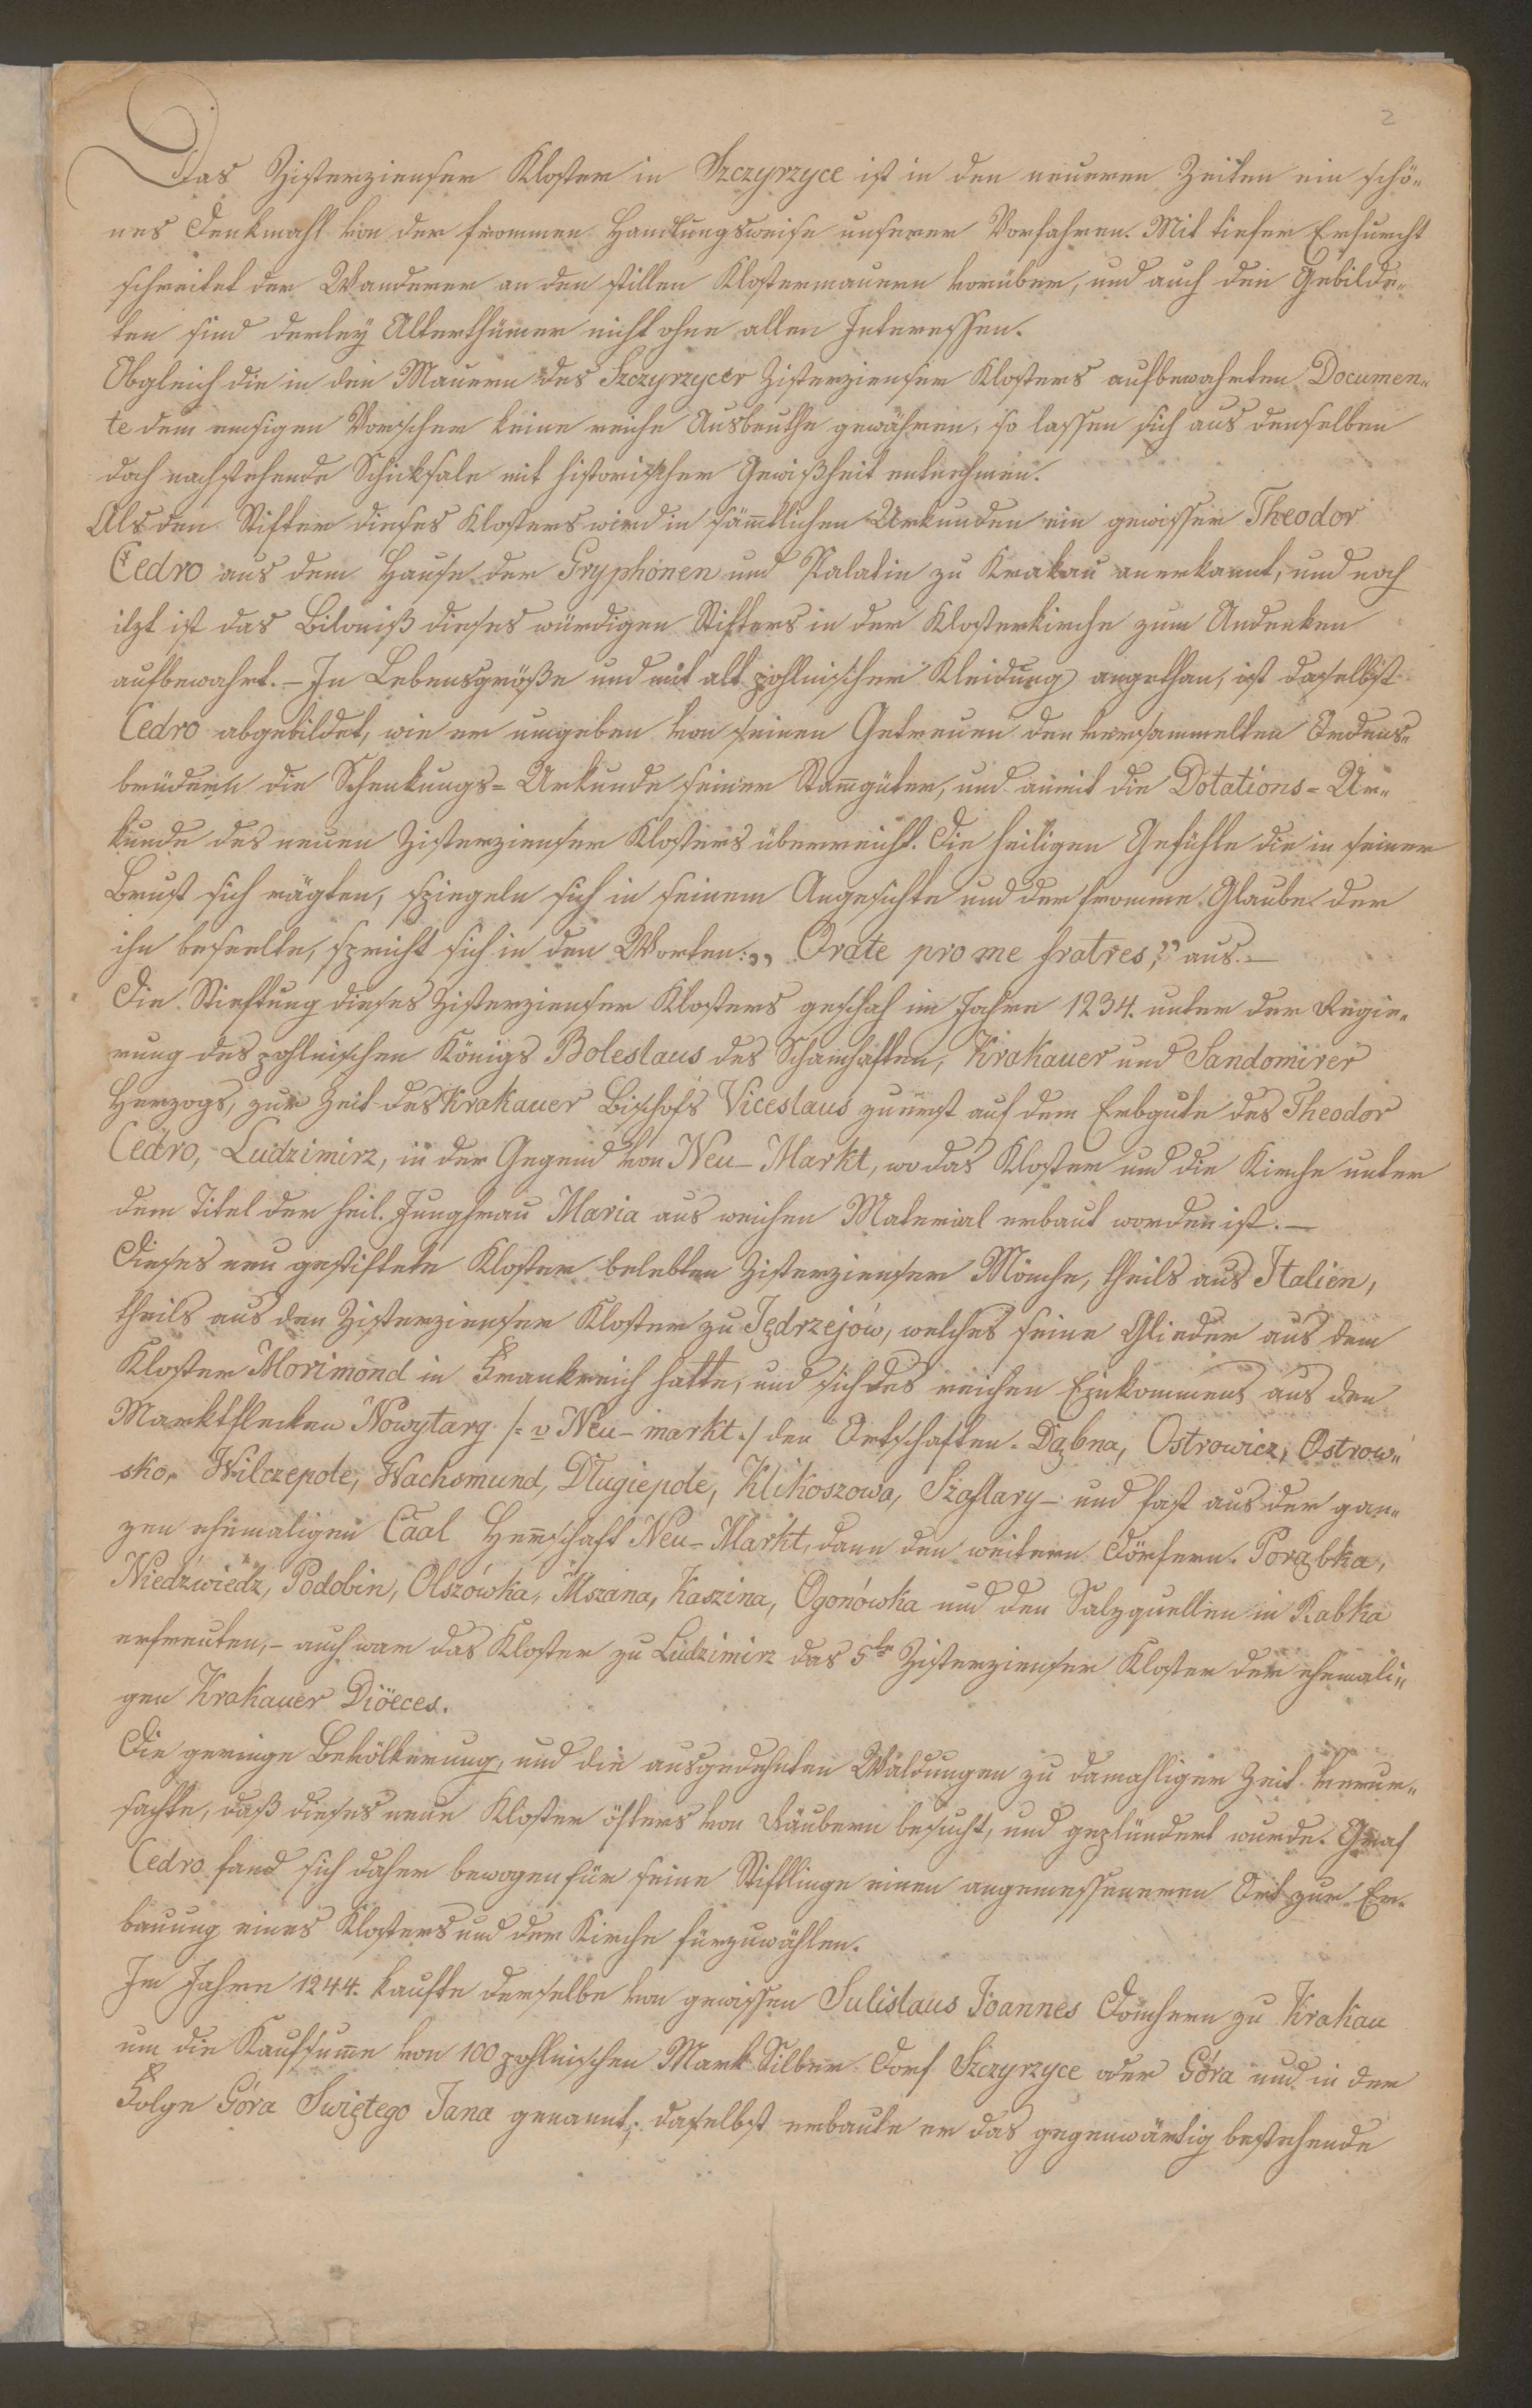 2
Das Zisterzienser Kloster in Szczyrzyce ist in den neueren Zeiten ein schö-
nes Denkmahl von der frommen Handlungsweise unserer Vorfahren. Mit tiefer Erfurcht
schreitet der Wanderer an den stillen Klostermauern vorüber, und auch den Gebilde-
ten sind derley Alterthümer nicht ohne allen Interessen.
Obgleich die in den Mauern des Szczyrzycer Zisterzienser Klosters aufbewahrten Documen-
te dem emsigen Vorscher keine reiche Ausbeuthe gewähren, so lassen sich aus denselben
doch nachstehende Schicksale mit historischer Gewißheit entnehmen.
Als den Stifter dieses Klosters wird in sämmtlichen Urkunden ein gewisser Theodor
Cedro aus dem Hause der Gryphonen und Palatin zu Krakau anerkannt, und noch
itzt ist das Bildniß dieses würdigen Stifters in der Klosterkirche zum Andenken
aufbewahrt. – In Lebensgröße und mit alt pohlnischer Kleidung angethan, ist daselbst
Cedro abgebildet, wie er umgeben von seinen Getreuen den versammelten Ordens-
brüdern die Schenkungs-Urkunde seiner Stammgüter, und anmit die Dotations-Ur-
kunde des neuen Zisterzienser Klosters überreicht. Die heiligen Gefühle die in seiner
Brust sich rägten, spiegeln sich in seinem Angesichte und der fromme Glaube der
ihn beseelte, spricht sich in den Worten: „Orate pro me fratres," aus. –
Die Stieftung dieses Zisterzienser Klosters geschah im Jahre 1234. unter der Regie-
rung des pohlnischen Königs Boleslaus des Schamhaften, Krakauer und Sandomirer
Herzogs, zur Zeit des Krakauer Bischofs Viceslaus zuerst auf dem Erbgute des Theodor
Cedro, Ludzimirz, in der Gegend von Neu-Markt, wo das Kloster und die Kirche unter
dem Titel der heil. Jungfrau Maria aus weichen Material erbaut worden ist. –
Dieses neu gestiftete Kloster belebten Zisterzienser Mönche, theils aus Italien,
theils aus den Zisterzienser Kloster zu Jędrzejów, welches seine Glieder aus dem
Kloster Morimond in Frankreich hatte, und sich des reichen Einkommens aus den
Marktflecken Nowytarg /: v Neu-markt :/ den Ortschaften. Dąbna, Ostrowicz, Ostrow-
sko, Wilczepole, Wachsmund, Długiepole, Klikoszowa, Szaflary – und fast aus der gan-
zen ehemaligen Caal Herrschaft Neu-Markt, dann den weitern Dörfern. Porąbka,
Niedźwiedz, Podobin, Olszówka, Mszana, Kaszina, Ogonówka und den Salzquellen in Rabka
erfreuten, – auch war das Kloster zu Ludzimirz das 5te Zisterzienser Kloster der ehemali-
gen Krakauer Diöeces.
Die geringe Bevölkerung, und die ausgedehnten Wäldungen zu damahliger Zeit verur-
sachte, daß dieses neue Kloster öfters von Räubern besucht, und geplündert wurde. Graf
Cedro fand sich daher bewogen für seine Stiftlinge einen angemesseneren Ort zur Er-
bauung eines Klosters und der Kirche fürzuwählen.
Im Jahre 1244. kaufte derselbe von gewissen Sulislaus Joannes Domherrn zu Krakau
um die Kaufsumme von 100 pohlnischen Mark Silber Dorf Szczyrzyce oder Góra und in der
Folge Góra Swiętego Jana genannt; daselbst erbaute er das gegenwärtig bestehende